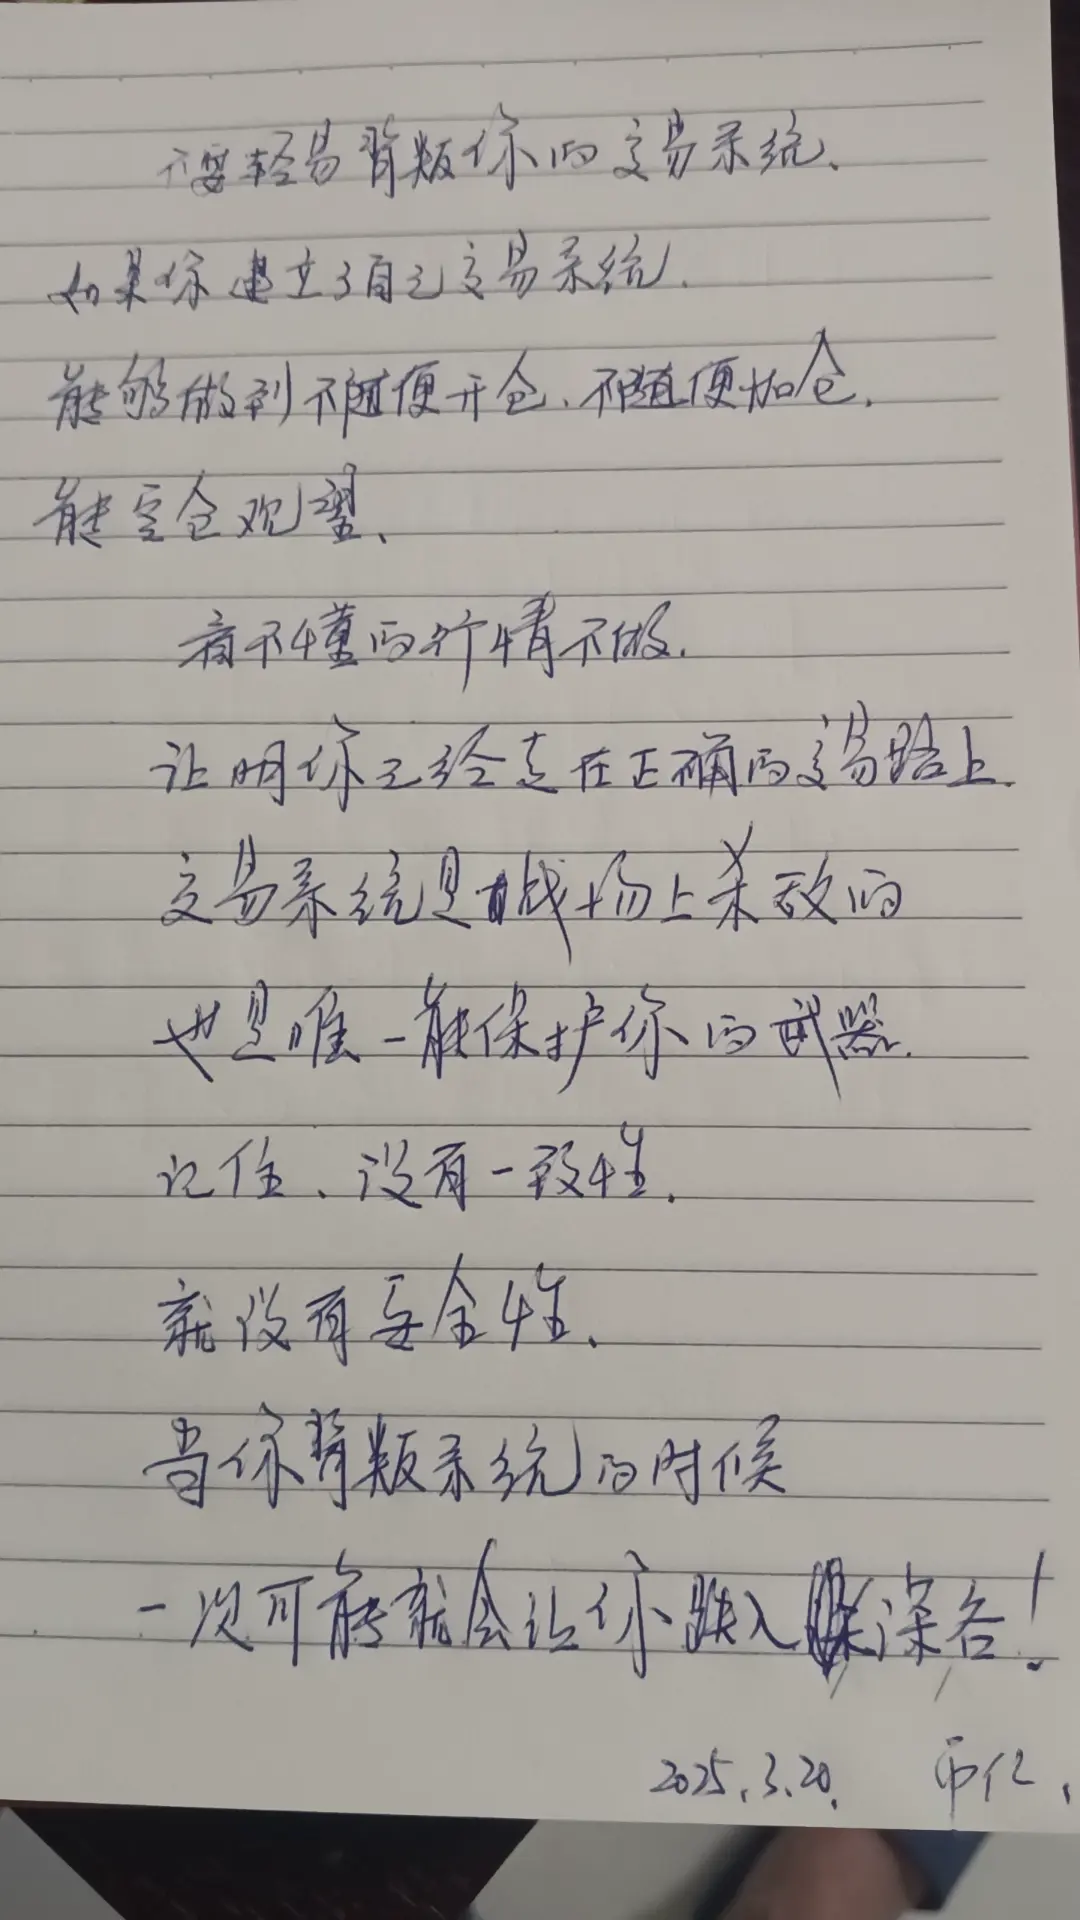 不要轻易背叛你的交易系统、
如果你建立了自己交易系统.
能够做到不随便开仓、不随便加仓.
能空仓观望、
看不懂的行情不做.
让明你已经走在正确的交易路上.
交易系统是战场上杀敌的
也是唯一能保护你的武器.
记住、没有一致性.
就没有安全性、
当你背叛系统的时候
一次可能就会让你跌入深谷!
2025.3.20. 币亿.